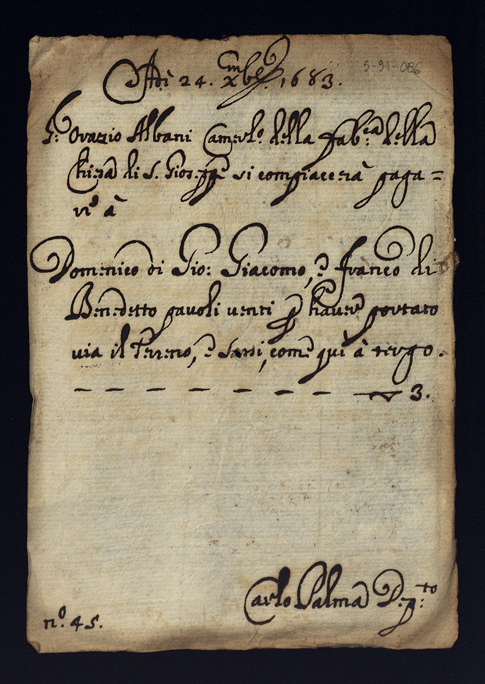 5-91-086
Adì 24. Xmbre. 1683.
Sr. Orazio Albani Camerlo. della Fabca: della
Chiesa di S. Gioseppe si compiacerà paga=
re à
Domenico di Gio: Giacomo, e Franco di
Benedetto pavoli venti p haver portato
via il Terreno, e Sassi, come quì à tergo.
3.
Carlo Palma Depto:
no. 45.